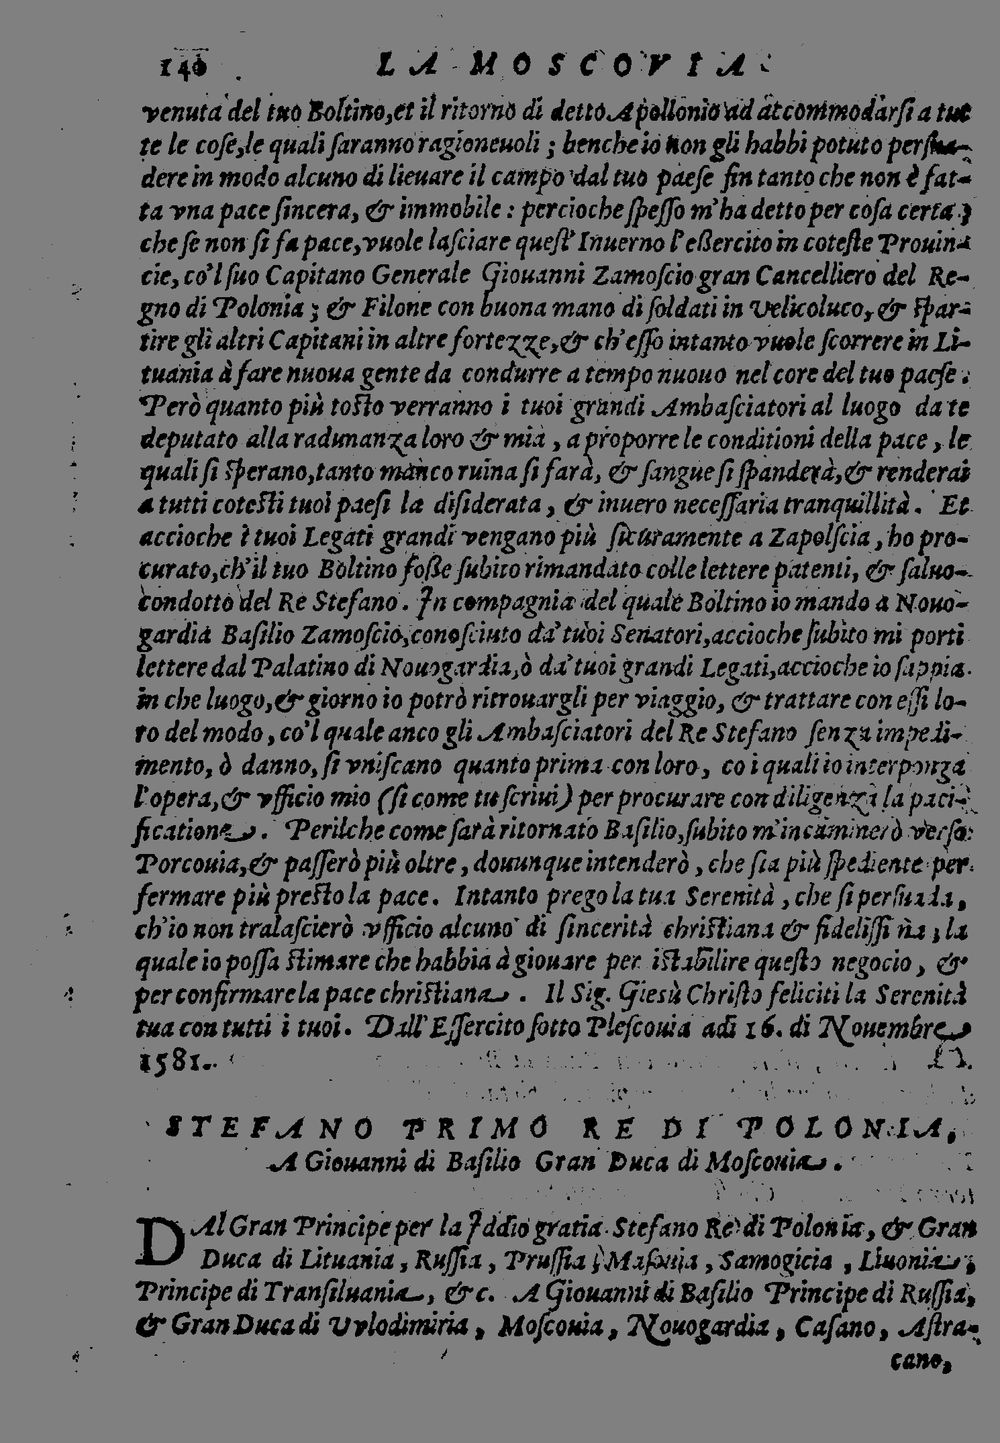 140 LA MOSCOVIA
venuta del tuo Boltino,et il ritorno di detto Apollonio ad accommodarſi a tut
te le coſe,le quali ſaranno ragioneuoli ; benche io non gli habbi potuto perſua-
dere in modo alcuno di lieuare il campo dal tuo paeſe fin tanto che non è fat-
ta vna pace ſincera, & immobile : percioche ſpeſſo m'ha detto per coſa certa ;
che ſe non ſi fa pace,vuole laſciare queſt' Inuerno l'eßercito in coteſte Prouin-
cie, co'l ſuo Capitano Generale Giouanni Zamoſcio gran Cancelliero del Re-
gno di Polonia ; & Filone con buona mano di ſoldati in Velicoluco, & ſpar-
tire gli altri Capitani in altre fortezze,& ch'eſſo intanto vuole ſcorrere in Li-
tuania à fare nuoua gente da condurre a tempo nuouo nel core del tuo paeſe .
Però quanto più toſto verranno i tuoi grandi Ambaſciatori al luogo da te
deputato alla radunanza loro & mia , a proporre le conditioni della pace , le
quali ſi ſperano,tanto manco ruina ſi farà, & ſangue ſi ſpanderà,& renderai
a tutti coteſti tuoi paeſi la diſiderata , & inuero neceſſaria tranquillità . Et
accioche i tuoi Legati grandi vengano più ſicuramente a Zapolſcia , ho pro-
curato,ch'il tuo Boltino foße ſubito rimandato colle lettere patenti, & ſaluo-
condotto del Re Stefano . In compagnia del quale Boltino io mando a Nouo-
gardia Baſilio Zamoſcio,conoſciuto da' tuoi Senatori,accioche ſubito mi porti
lettere dal Palatino di Nouogardia,ò da' tuoi grandi Legati,accioche io ſappia
in che luogo,& giorno io potrò ritrouargli per viaggio, & trattare con eſſi lo-
ro del modo , co'l quale anco gli Ambaſciatori del Re Stefano ſenza impedi-
mento, ò danno, ſi vniſcano quanto prima con loro , co i quali io interponga
l'opera,& vfficio mio (ſi come tu ſcriui) per procurare con diligenza la paci-
ficatione . Perilche come ſarà ritornato Baſilio,ſubito m'incaminerò verſo
Porcouia,& paſſerò più oltre , douunque intenderò , che ſia più ſpediente per
fermare più preſto la pace . Intanto prego la tua Serenità , che ſi perſuada,
ch'io non tralaſcierò vfficio alcuno di ſincerità chriſtiana & fideliſſima ; la
quale io poſſa ſtimare che habbia à giouare per iſtabilire queſto negocio , &
per confirmare la pace chriſtiana . Il Sig. Gieſù Chriſto feliciti la Serenità
tua con tutti i tuoi . Dall' Eſſercito ſotto Pleſcouia adi 16. di Nouembre
1581.
STEFANO PRIMO RE DI POLONIA,
A Giouanni di Baſilio Gran Duca di Moſcouia .
DAl Gran Principe per la Iddio gratia Stefano Re di Polonia, & Gran
Duca di Lituania , Ruſſia , Pruſſia , Maſouia , Samogicia , Liuonia ,
Principe di Tranſiluania , & c. A Giouanni di Baſilio Principe di Ruſſia,
& Gran Duca di Vvlodimiria , Moſcouia , Nouogardia , Caſano , Aſtra-
cano,